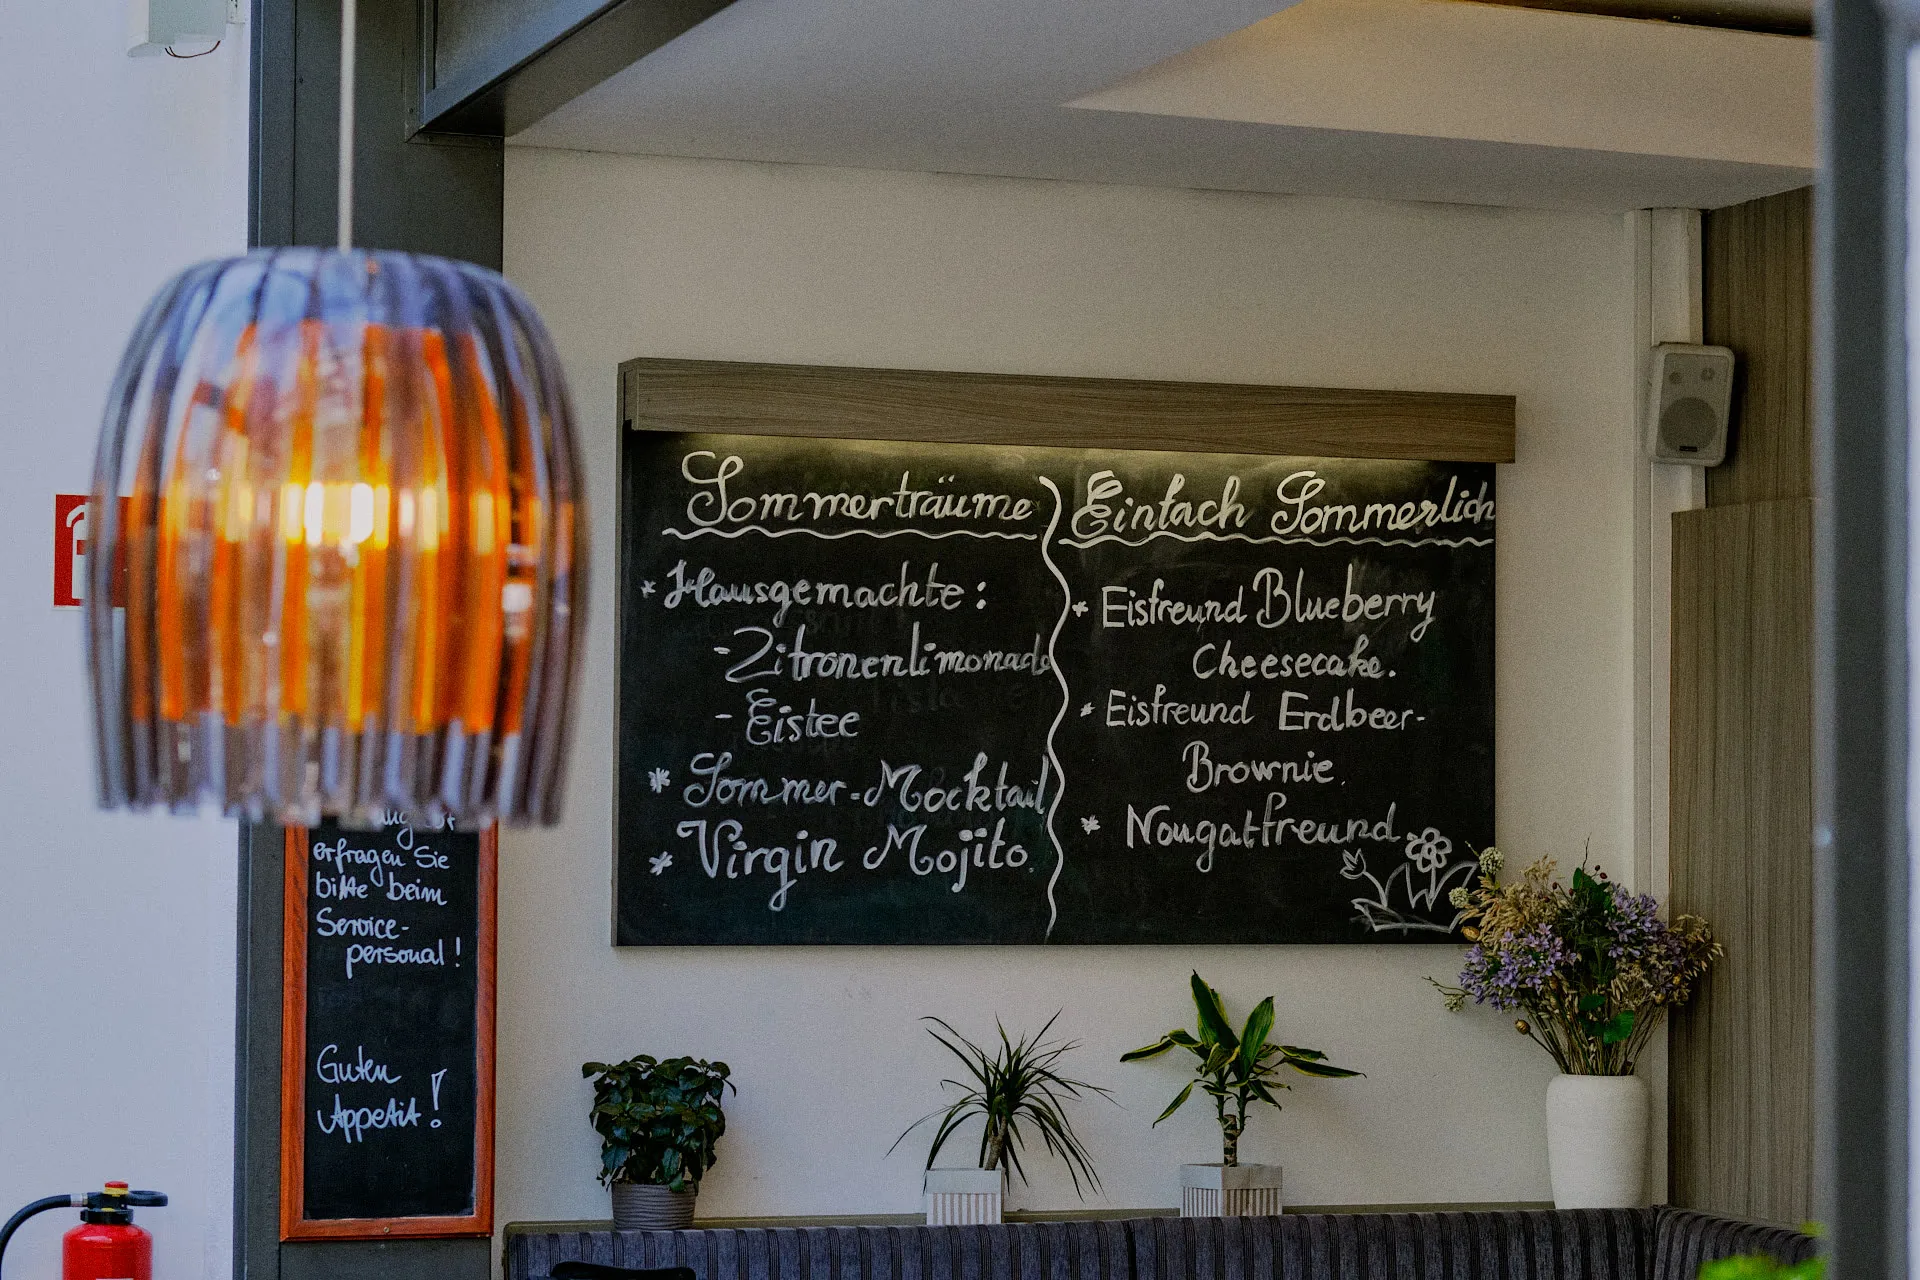 Sommerträume
* Hausgemachte:
- Zitronenlimonade
- Eistee
* Sommer-Mocktail
* Virgin Mojito.
Einfach Sommerlich
* Eisfreund Blueberry
Cheesecake.
* Eisfreund Erdbeer-
Brownie.
* Nougatfreund
erfragen Sie
bitte beim
Service-
personal!
Guten
Appetit!